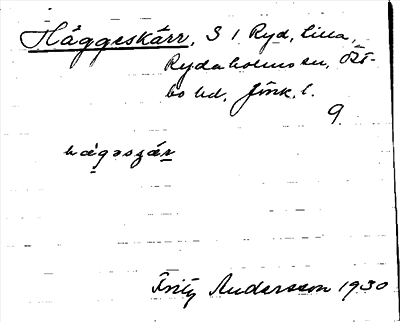 Häggeskärr, S 1 Ryd, Lilla,
Rydaholms sn, Öst-
bo hd, Jönk. l.
9.
hägəsʒár
Fritz Andersson 1930